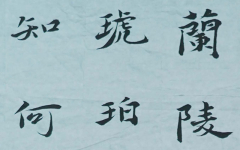 蘭陵
琥珀
知何